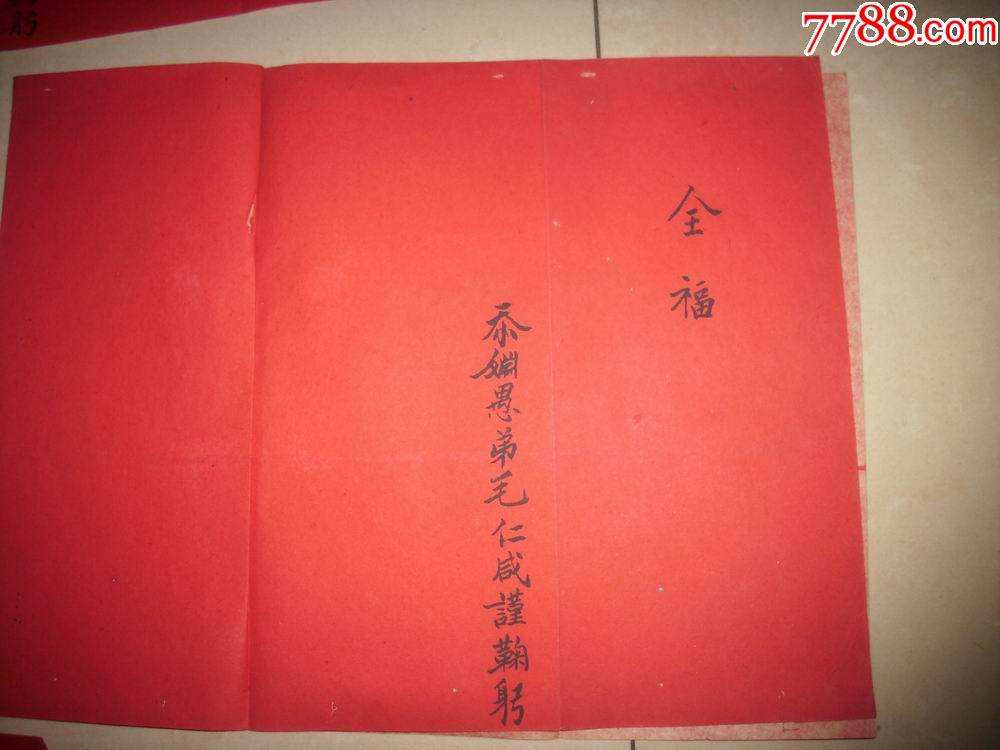 全福
忝姻愚弟毛仁咸謹鞠躬
躬
7788.com